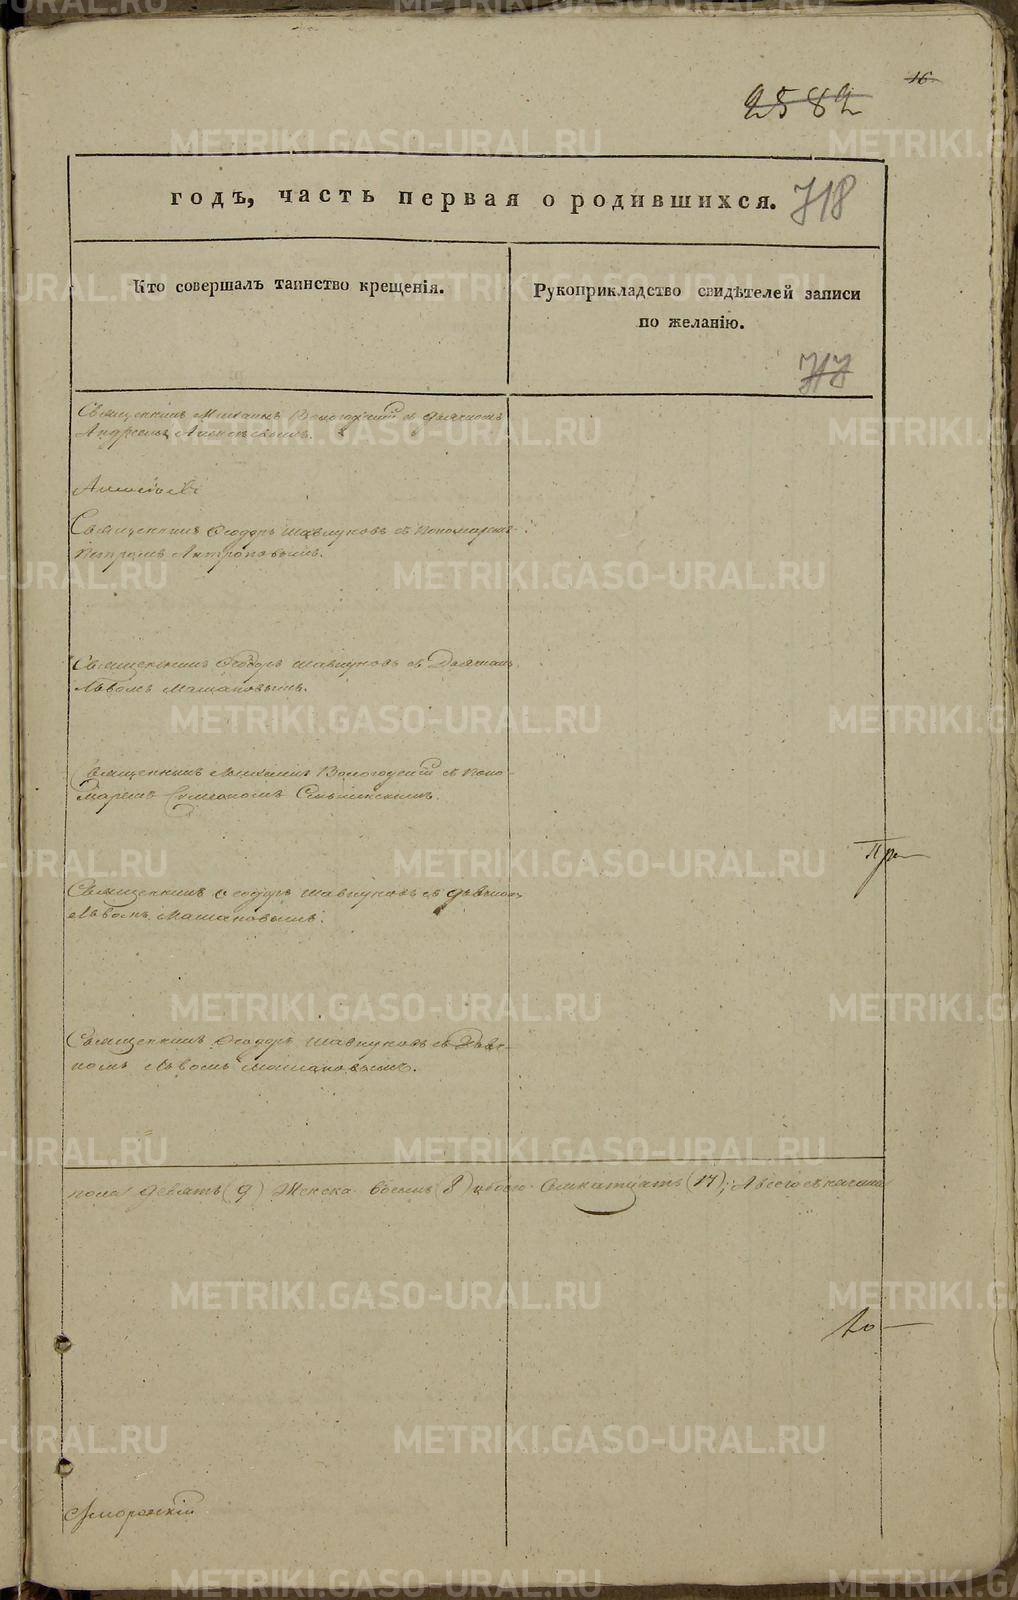 16
2582
годъ, часть первая о родившихся. 718
Кто совершалъ таинство крещенія.
Рукоприкладство свидѣтелей записи
по желанію.
717
Священникъ Михаилъ Вологодскій съ дьячкомъ
Андреемъ Алексѣевымъ.
Священникъ Ѳеодоръ Шавкуновъ съ Пономаремъ
Петромъ Антроповымъ.
Священникъ Ѳеодоръ Шавкуновъ съ
Львомъ Машановымъ.
Священникъ Михаилъ Вологодскій съ Поно-
маремъ Симеономъ
Священникъ Ѳеодоръ Шавкуновъ съ
Львомъ Машановымъ.
Священникъ Ѳеодоръ Шавкуновъ съ Дьяч-
комъ Львомъ Машановымъ.
пола девять (9) Женска восемь (8) обоего Семнатцать (17); А всего съ начала
METRIKI.GASO-URAL.RU